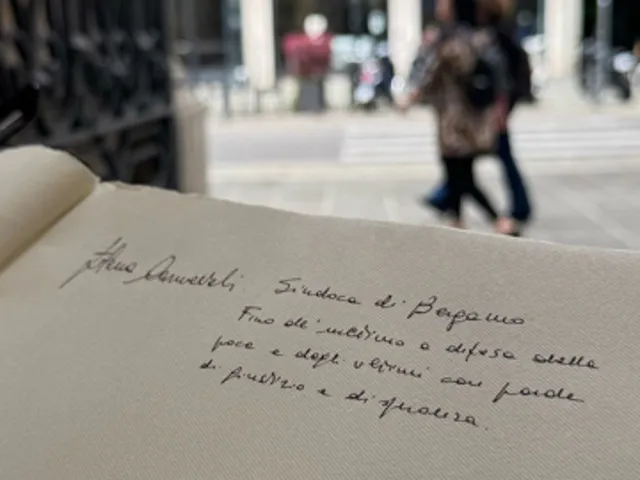 Elena Carnevali Sindaca di Bergamo
Fino all'ultimo a difesa della
pace e degli ultimi con parole
di giustizia e di speranza.